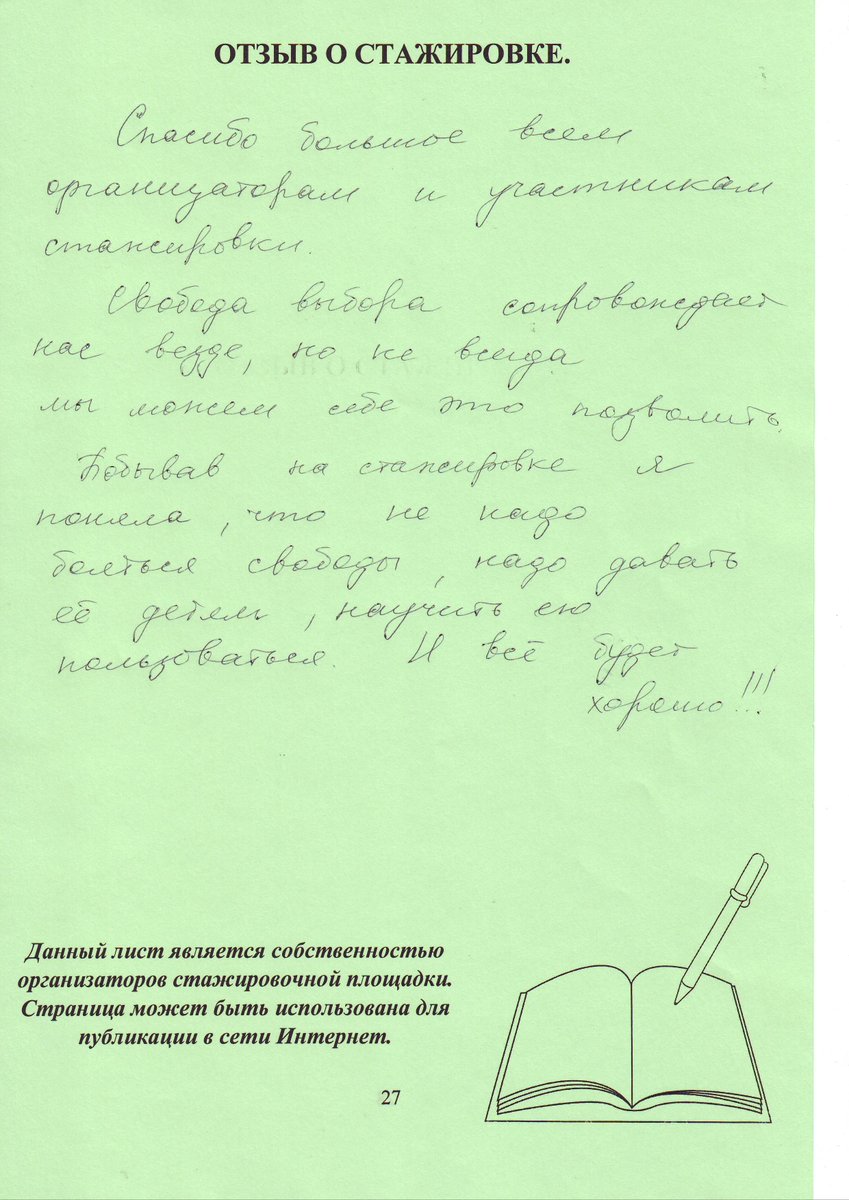 ОТЗЫВ О СТАЖИРОВКЕ.
Спасибо большое всем
организаторам и участникам
стажировки.
Свобода выбора сопровождает
нас везде, но не всегда
мы можем себе это позволить.
Побывав на стажировке я
поняла, что не надо
бояться свободы, надо давать
её детям, научить ею
пользоваться. И всё будет
хорошо!!!
Данный лист является собственностью
организаторов стажировочной площадки.
Страница может быть использована для
публикации в сети Интернет.
27